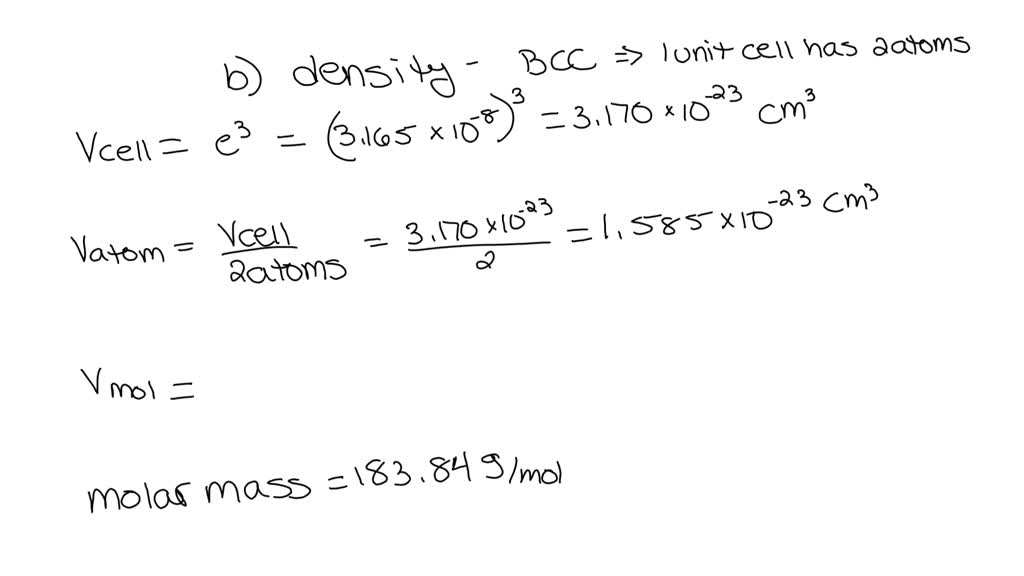 b) density - BCC ⇒ 1 unit cell has 2 atoms
Vcell = e³ = (3.165 × 10⁻⁸)³ = 3.170 × 10⁻²³ cm³
Vatom = Vcell / 2 atoms = 3.170 × 10⁻²³ / 2 = 1.585 × 10⁻²³ cm³
Vmol =
molar mass = 183.84 g/mol